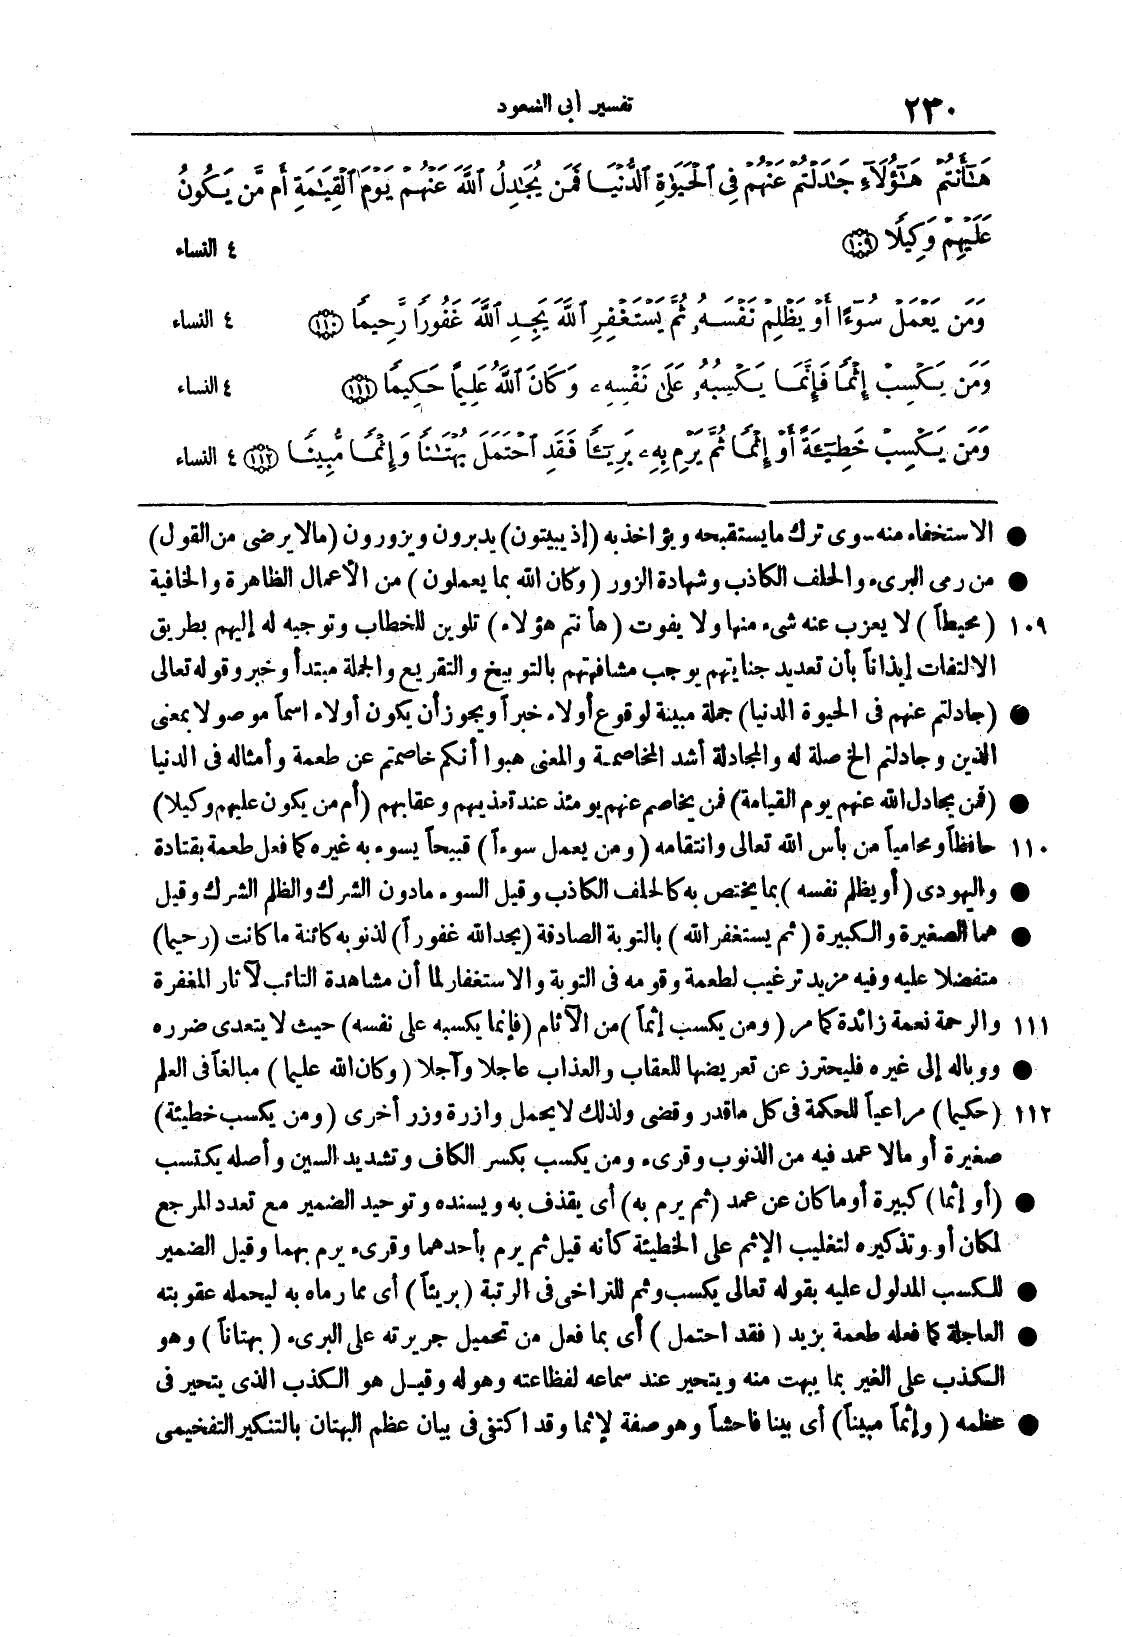 ٢٣٠ تفسير أبى السعود
هَٰٓأَنتُمْ هَٰٓؤُلَآءِ جَٰدَلْتُمْ عَنْهُمْ فِى ٱلْحَيَوٰةِ ٱلدُّنْيَا فَمَن يُجَٰدِلُ ٱللَّهَ عَنْهُمْ يَوْمَ ٱلْقِيَٰمَةِ أَم مَّن يَكُونُ
عَلَيْهِمْ وَكِيلًا ١٠٩ ٤ النساء
وَمَن يَعْمَلْ سُوٓءًا أَوْ يَظْلِمْ نَفْسَهُۥ ثُمَّ يَسْتَغْفِرِ ٱللَّهَ يَجِدِ ٱللَّهَ غَفُورًا رَّحِيمًا ١١٠ ٤ النساء
وَمَن يَكْسِبْ إِثْمًا فَإِنَّمَا يَكْسِبُهُۥ عَلَىٰ نَفْسِهِۦ وَكَانَ ٱللَّهُ عَلِيمًا حَكِيمًا ١١١ ٤ النساء
وَمَن يَكْسِبْ خَطِيٓـَٔةً أَوْ إِثْمًا ثُمَّ يَرْمِ بِهِۦ بَرِيٓـًٔا فَقَدِ ٱحْتَمَلَ بُهْتَٰنًا وَإِثْمًا مُّبِينًا ١١٢ ٤ النساء
● الاستخفاء منه سوى ترك ما يستقبحه ويؤاخذ به (إذ يبيتون) يدبرون ويزورون (مالا يرضى من القول)
● من رمى البرىء والحلف الكاذب وشهادة الزور (وكان الله بما يعملون) من الأعمال الظاهرة والخافية
١٠٩ (محيطاً) لا يعزب عنه شىء منها ولا يفوت (هأنتم هؤلاء) تلوين للخطاب وتوجيه له إليهم بطريق
الالتفات إيذاناً بأن تعديد جنايتهم يوجب مشافهتهم بالتوبيخ والتقريع والجملة مبتدأ وخبر وقوله تعالى
● (جادلتم عنهم فى الحيوة الدنيا) جملة مبينة لوقوع أولاء خبراً ويجوز أن يكون أولاء اسماً موصولا بمعنى
الذين وجادلتم الخ صلة له والمجادلة أشد المخاصمة والمعنى هبوا أنكم خاصمتم عن طعمة وأمثاله فى الدنيا
● (فمن يجادل الله عنهم يوم القيامة) فمن يخاصم عنهم يومئذ عند تعذيبهم وعقابهم (أم من يكون عليهم وكيلا)
١١٠ حافظاً ومحامياً من بأس الله تعالى وانتقامه (ومن يعمل سوءاً) قبيحاً يسوء به غيره كما فعل طعمة بقتادة
● واليهودى (أو يظلم نفسه) بما يختص به كالحلف الكاذب وقيل السوء مادون الشرك والظلم الشرك وقيل
● هما الصغيرة والكبيرة (ثم يستغفر الله) بالتوبة الصادقة (يجد الله غفوراً) لذنوبه كائنة ما كانت (رحيما)
متفضلا عليه وفيه مزيد ترغيب لطعمة وقومه فى التوبة والاستغفار لما أن مشاهدة التائب لآثار المغفرة
١١١ والرحمة نعمة زائدة كما مر (ومن يكسب إثماً) من الآثام (فإنما يكسبه على نفسه) حيث لا يتعدى ضرره
● ووباله إلى غيره فليحترز عن تعريضها للعقاب والعذاب عاجلا وآجلا (وكان الله عليما) مبالغاً فى العلم
١١٢ (حكيما) مراعياً للحكمة فى كل ماقدر وقضى ولذلك لا يحمل وازرة وزر أخرى (ومن يكسب خطيئة)
صغيرة أو مالا عمد فيه من الذنوب وقرىء ومن يكسب بكسر الكاف وتشديد السين وأصله يكتسب
● (أو إثما) كبيرة أو ما كان عن عمد (ثم يرم به) أى يقذف به ويسنده وتوحيد الضمير مع تعدد المرجع
لمكان أو وتذكيره لتغليب الإثم على الخطيئة كأنه قيل ثم يرم بأحدهما وقرىء يرم بهما وقيل الضمير
● للكسب المدلول عليه بقوله تعالى يكسب وثم للتراخى فى الرتبة (بريئاً) أى مما رماه به ليحمله عقوبته
● العاجلة كما فعله طعمة بزيد (فقد احتمل) أى بما فعل من تحميل جريرته على البرىء (بهتاناً) وهو
الكذب على الغير بما يبهت منه ويتحير عند سماعه لفظاعته وهوله وقيل هو الكذب الذى يتحير فى
● عظمه (وإثماً مبيناً) أى بينا فاحشاً وهو صفة لإثما وقد اكتفى فى بيان عظم البهتان بالتنكير التفخيمى